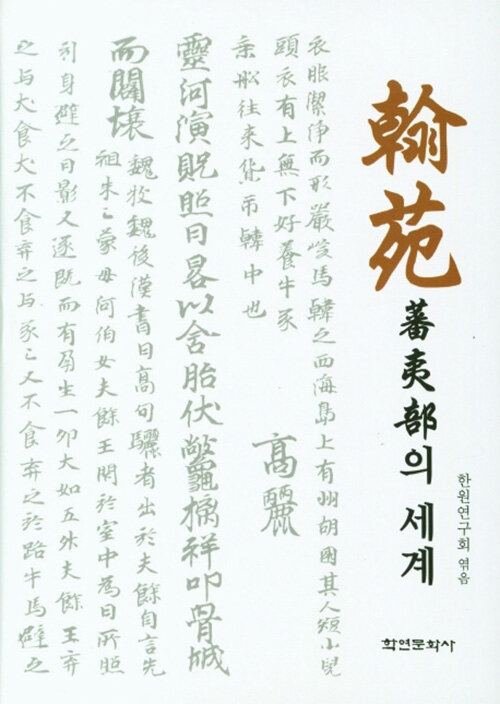 翰苑
蕃夷部의 세계
한원연구회 엮음
학연문화사
衣服潔淨而形嚴峻馬韓之西海島上有州胡國其人短小髡
頭衣有上無下好養牛豕
乘舩往来貨市韓中也
高麗
靈河演貺照日晷以含胎伏鼈摛祥叩骨城
而闢壤 魏牧魏後漢書曰高句驪者出於夫餘自言先
祖朱之蒙母河伯女夫餘王閇於室中為日所照
引身避之日影又逐既而有孕生一卵大如五升夫餘王弃
之与犬食犬不食弃之与豕之又不食弃之於路牛馬避之